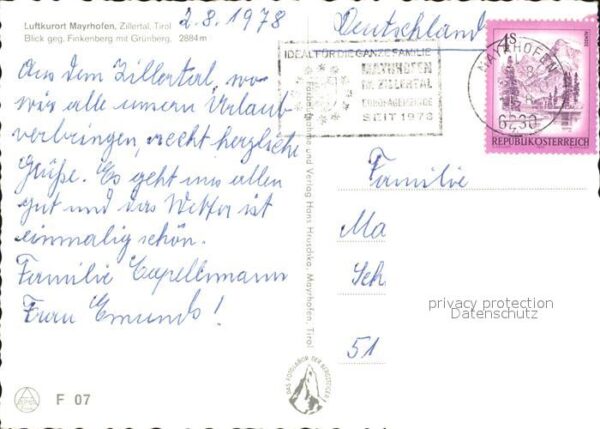 Luftkurort Mayrhofen, Zillertal, Tirol
Blick geg. Finkenberg mit Grünberg, 2884 m
2.8.1978
Deutschland
IDEAL FÜR DIE GANZE FAMILIE
MAYRHOFEN
IM ZILLERTAL
EUROPAGEMEINDE
SEIT 1973
MAYRHOFEN
6290
4S
REPUBLIK ÖSTERREICH
Aus dem Zillertal, wo
wir alle unsern Urlaub
verbringen, recht herzliche
Grüße. Es geht uns allen
gut und das Wetter ist
einmalig schön.
Familie Capellmann
Frau Emunds!
Familie
Ma
Sch
51
und Verlag Hans Hruschka, Mayrhofen, Tirol
privacy protection
Datenschutz
DAS FOTOLABOR DER BERGSTEIGER
F 07